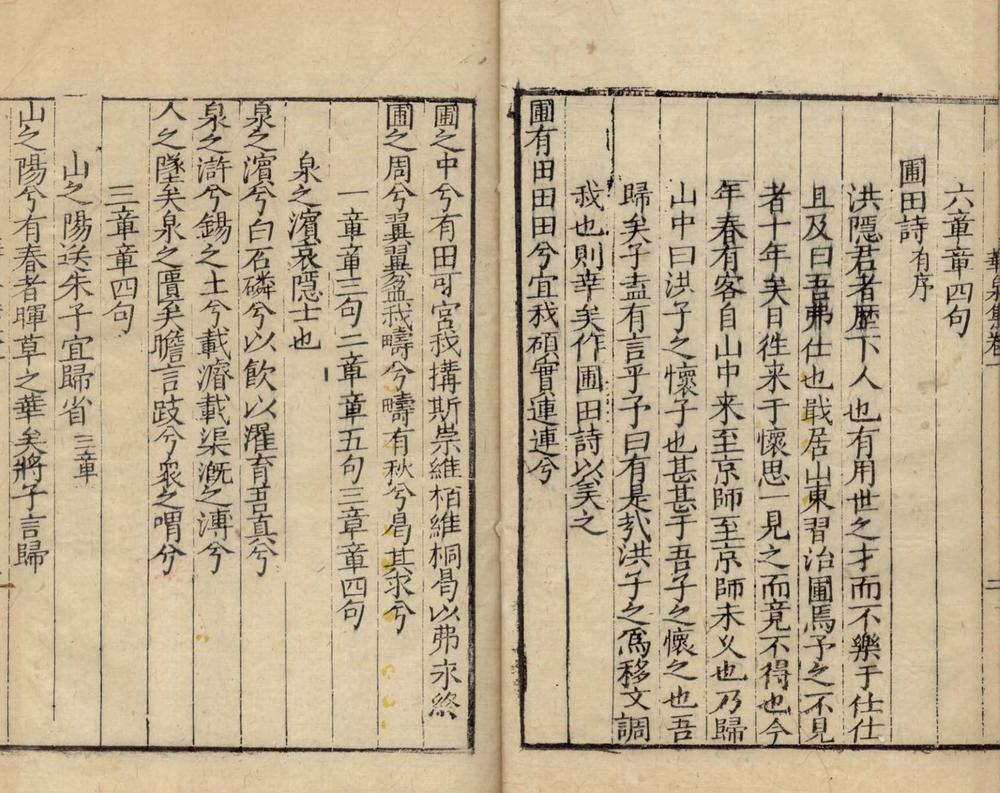 華泉集卷一
六章章四句
圃田詩有序
洪隱君者歷下人也有用世之才而不樂于仕仕
且及曰吾弗仕也戢居山東習治圃焉予之不見
者十年矣日徃来于懷思一見之而竟不得也今
年春有客自山中来至京師至京師未乂也乃歸
山中曰洪子之懷子也甚甚于吾子之懷之也吾
歸矣子盍有言乎予曰有是㢤洪子之爲移文調
我也則幸矣作圃田詩以美之
圃有田田田兮宜我碩實連連兮
圃之中兮有田可宮我搆斯崇維栢維桐曷以弗永終
圃之周兮翼翼盈我疇兮疇有秋兮曷其求兮
一章章三句二章章五句三章章四句
泉之濵哀隱士也
泉之濵兮白石磷兮以飲以濯育吾真兮
泉之滸兮錫之土兮載濬載渠漑之溥兮
人之墜矣泉之匱矣瞻言跂兮衆之喟兮
三章章四句
山之陽送朱子宜歸省三章
山之陽兮有春者暉草之華矣將子言歸